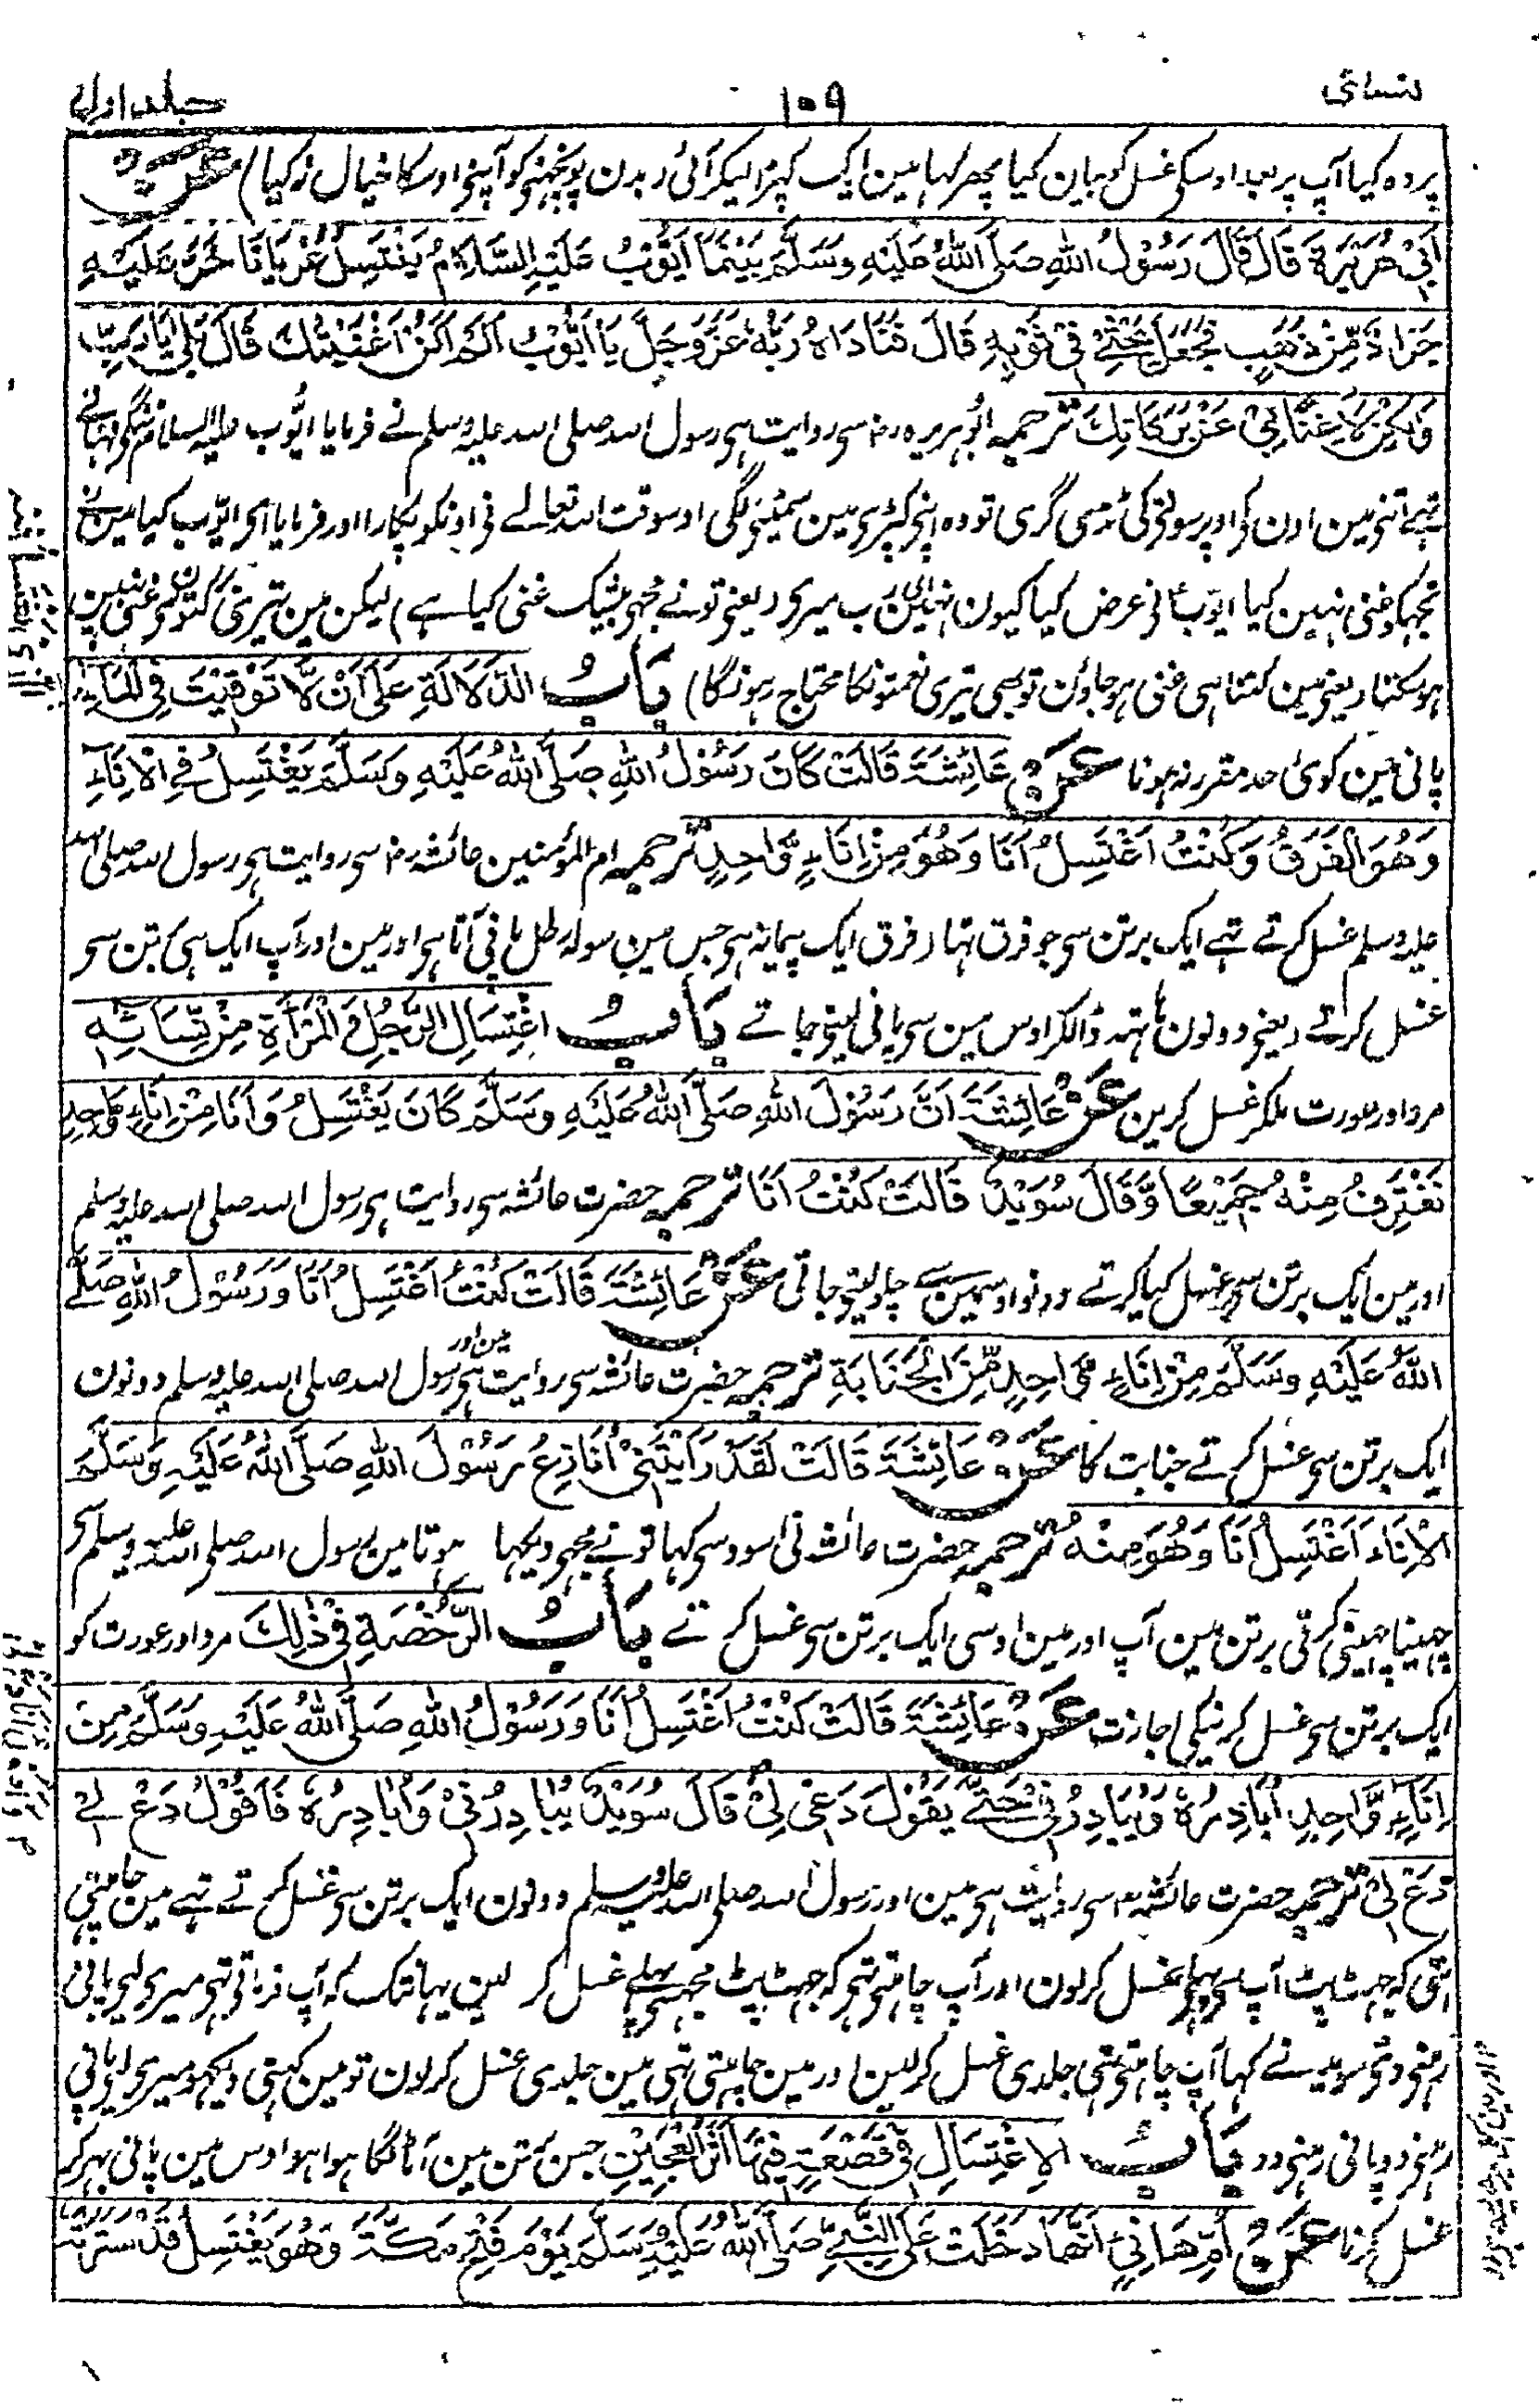 نسائی
۱۰۹
جلد اول
پردہ کیا آپ پر بعد اوسکی غسل کو بیان کیا پھر کہا مین ایک کپڑا لیکر آئی (بدن پونچھنیکو آپنے اوسکا خیال نہ کیا) عَنْ
اَبِیْ هُرَيْرَةَ قَالَ قَالَ رَسُوْلُ اللهِ صَلَّى اللهُ عَلَيْهِ وَسَلَّمَ بَيْنَمَا اَيُّوْبُ عَلَيْهِ السَّلَامُ يَغْتَسِلُ عُرْيَانًا خَرَّ عَلَيْهِ
جَرَادٌ مِّنْ ذَهَبٍ فَجَعَلَ يَحْثِيْ فِيْ ثَوْبِهٖ قَالَ فَنَادَاهُ رَبُّهٗ عَزَّ وَجَلَّ يَا اَيُّوْبُ اَلَمْ اَكُنْ اَغْنَيْتُكَ قَالَ بَلٰى يَا رَبِّ
وَلٰكِنْ لَا غِنًى بِيْ عَنْ بَرَكَاتِكَ ترجمہ ابوہریرہ رض سی روایت ہی رسول اللہ صلی اللہ علیہ وسلم نے فرمایا ایوب علیہ السلام ننگی نہاتے
تہے اتنی مین اون کی اوپر سونیکی ٹڈی گری تو وہ اپنی کپڑی مین سمیٹنی لگی اوسوقت اللہ تعالے نی اونکو پکارا اور فرمایا ای ایوب کیا مین نی
تجہکو غنی نہین کیا ایوب نی عرض کیا کیون نہین ای رب میری (یعنی تونے مجہی بیشک غنی کیا ہے) لیکن مین تیری برکتون سی غنی نہین
ہو سکتا (یعنی مین کتنا ہی غنی ہو جاؤن تو بہی تیری نعمتونکا محتاج ہونگا) بَابُ الدَّلَالَةِ عَلٰى اَنْ لَّا تَوْقِيْتَ فِي الْمَاءِ
پانی مین کوئی حد مقرر نہ ہونا عَنْ عَائِشَةَ قَالَتْ كَانَ رَسُوْلُ اللهِ صَلَّى اللهُ عَلَيْهِ وَسَلَّمَ يَغْتَسِلُ فِي الْاِنَاءِ
وَهُوَ الْفَرَقُ وَكُنْتُ اَغْتَسِلُ اَنَا وَهُوَ مِنْ اِنَاءٍ وَّاحِدٍ ترجمہ ام المؤمنین عائشہ رض سی روایت ہی رسول اللہ صلی اللہ
علیہ وسلم غسل کرتے تہے ایک برتن سی جو فرق تہا (فرق ایک پیمانہ ہی جس مین سولہ رطل پانی آتا ہی) اور مین اور آپ ایک ہی برتن سی
غسل کرتے (یعنی دونون ہاتہہ ڈالکر اوس مین سی پانی لیتی جاتے بَابُ اغْتِسَالِ الرَّجُلِ وَالْمَرْأَةِ مِنْ نِّسَائِهٖ
مرد اور عورت ملکر غسل کرین عَنْ عَائِشَةَ اَنَّ رَسُوْلَ اللهِ صَلَّى اللهُ عَلَيْهِ وَسَلَّمَ كَانَ يَغْتَسِلُ وَاَنَا مِنْ اِنَاءٍ وَّاحِدٍ
نَغْتَرِفُ مِنْهُ جَمِيْعًا وَّقَالَ سُوَيْدٌ قَالَتْ كُنْتُ اَنَا ترجمہ حضرت عائشہ سی روایت ہی رسول اللہ صلی اللہ علیہ وسلم
اور مین ایک برتن سی غسل کیا کرتے دونو اوسمین سے چلو لیتی جاتی عَنْ عَائِشَةَ قَالَتْ كُنْتُ اَغْتَسِلُ اَنَا وَرَسُوْلُ اللهِ صَلَّى
اللهُ عَلَيْهِ وَسَلَّمَ مِنْ اِنَاءٍ وَّاحِدٍ مِّنَ الْجَنَابَةِ ترجمہ حضرت عائشہ سی روایت ہی مین اور رسول اللہ صلی اللہ علیہ وسلم دونون
ایک برتن سی غسل کرتے جنابت کا عَنْ عَائِشَةَ قَالَتْ لَقَدْ رَاَيْتَنِيْ اُنَازِعُ رَسُوْلَ اللهِ صَلَّى اللهُ عَلَيْهِ وَسَلَّمَ
الْاِنَاءَ اَغْتَسِلُ اَنَا وَهُوَ مِنْهُ ترجمہ حضرت عائشہ نی اسود سی کہا تونے مجہی دیکہا ہوتا مین رسول اللہ صلی اللہ علیہ وسلم سی
چہینا چہینی کرتی برتن مین آپ اور مین اوسی ایک برتن سی غسل کرتے بَابُ الرُّخْصَةِ فِيْ ذٰلِكَ مرد اور عورت کو
ایک برتن سی غسل کرنیکی اجازت عَنْ عَائِشَةَ قَالَتْ كُنْتُ اَغْتَسِلُ اَنَا وَرَسُوْلُ اللهِ صَلَّى اللهُ عَلَيْهِ وَسَلَّمَ مِنْ
اِنَاءٍ وَّاحِدٍ اُبَادِرُهٗ وَيُبَادِرُنِيْ حَتّٰى يَقُوْلَ دَعِيْ لِيْ قَالَ سُوَيْدٌ يُبَادِرُنِيْ وَاُبَادِرُهٗ فَاَقُوْلُ دَعْ لِيْ
دَعْ لِيْ ترجمہ حضرت عائشہ رض سی روایت ہی مین اور رسول اللہ صلی اللہ علیہ وسلم دونون ایک برتن سی غسل کرتے تہے مین چاہتی
تہی کہ جہٹ پٹ آپ سی پہلی غسل کرلون اور آپ چاہتی تہی کہ جہٹ پٹ مجہسی پہلے غسل کر لین یہانتک کہ آپ فرماتی تہی میری لیی پانی
رہنی دی سوید نے کہا آپ چاہتی تہی جلدی غسل کرلین اور مین چاہتی تہی مین جلدی غسل کرلون تو مین کہتی دیکہو میری لیی پانی
رہنی دو پانی رہنی دو بَابُ الْاِغْتِسَالِ فِيْ قَصْعَةٍ فِيْهَا اَثَرُ الْعَجِيْنِ جس برتن مین آٹا لگا ہوا ہو اوس مین پانی بہر کر
غسل کرنا عَنْ اُمِّ هَانِئٍ اَنَّهَا دَخَلَتْ عَلَى النَّبِيِّ صَلَّى اللهُ عَلَيْهِ وَسَلَّمَ يَوْمَ فَتْحِ مَكَّةَ وَهُوَ يَغْتَسِلُ قَدْ سَتَرَتْهُ